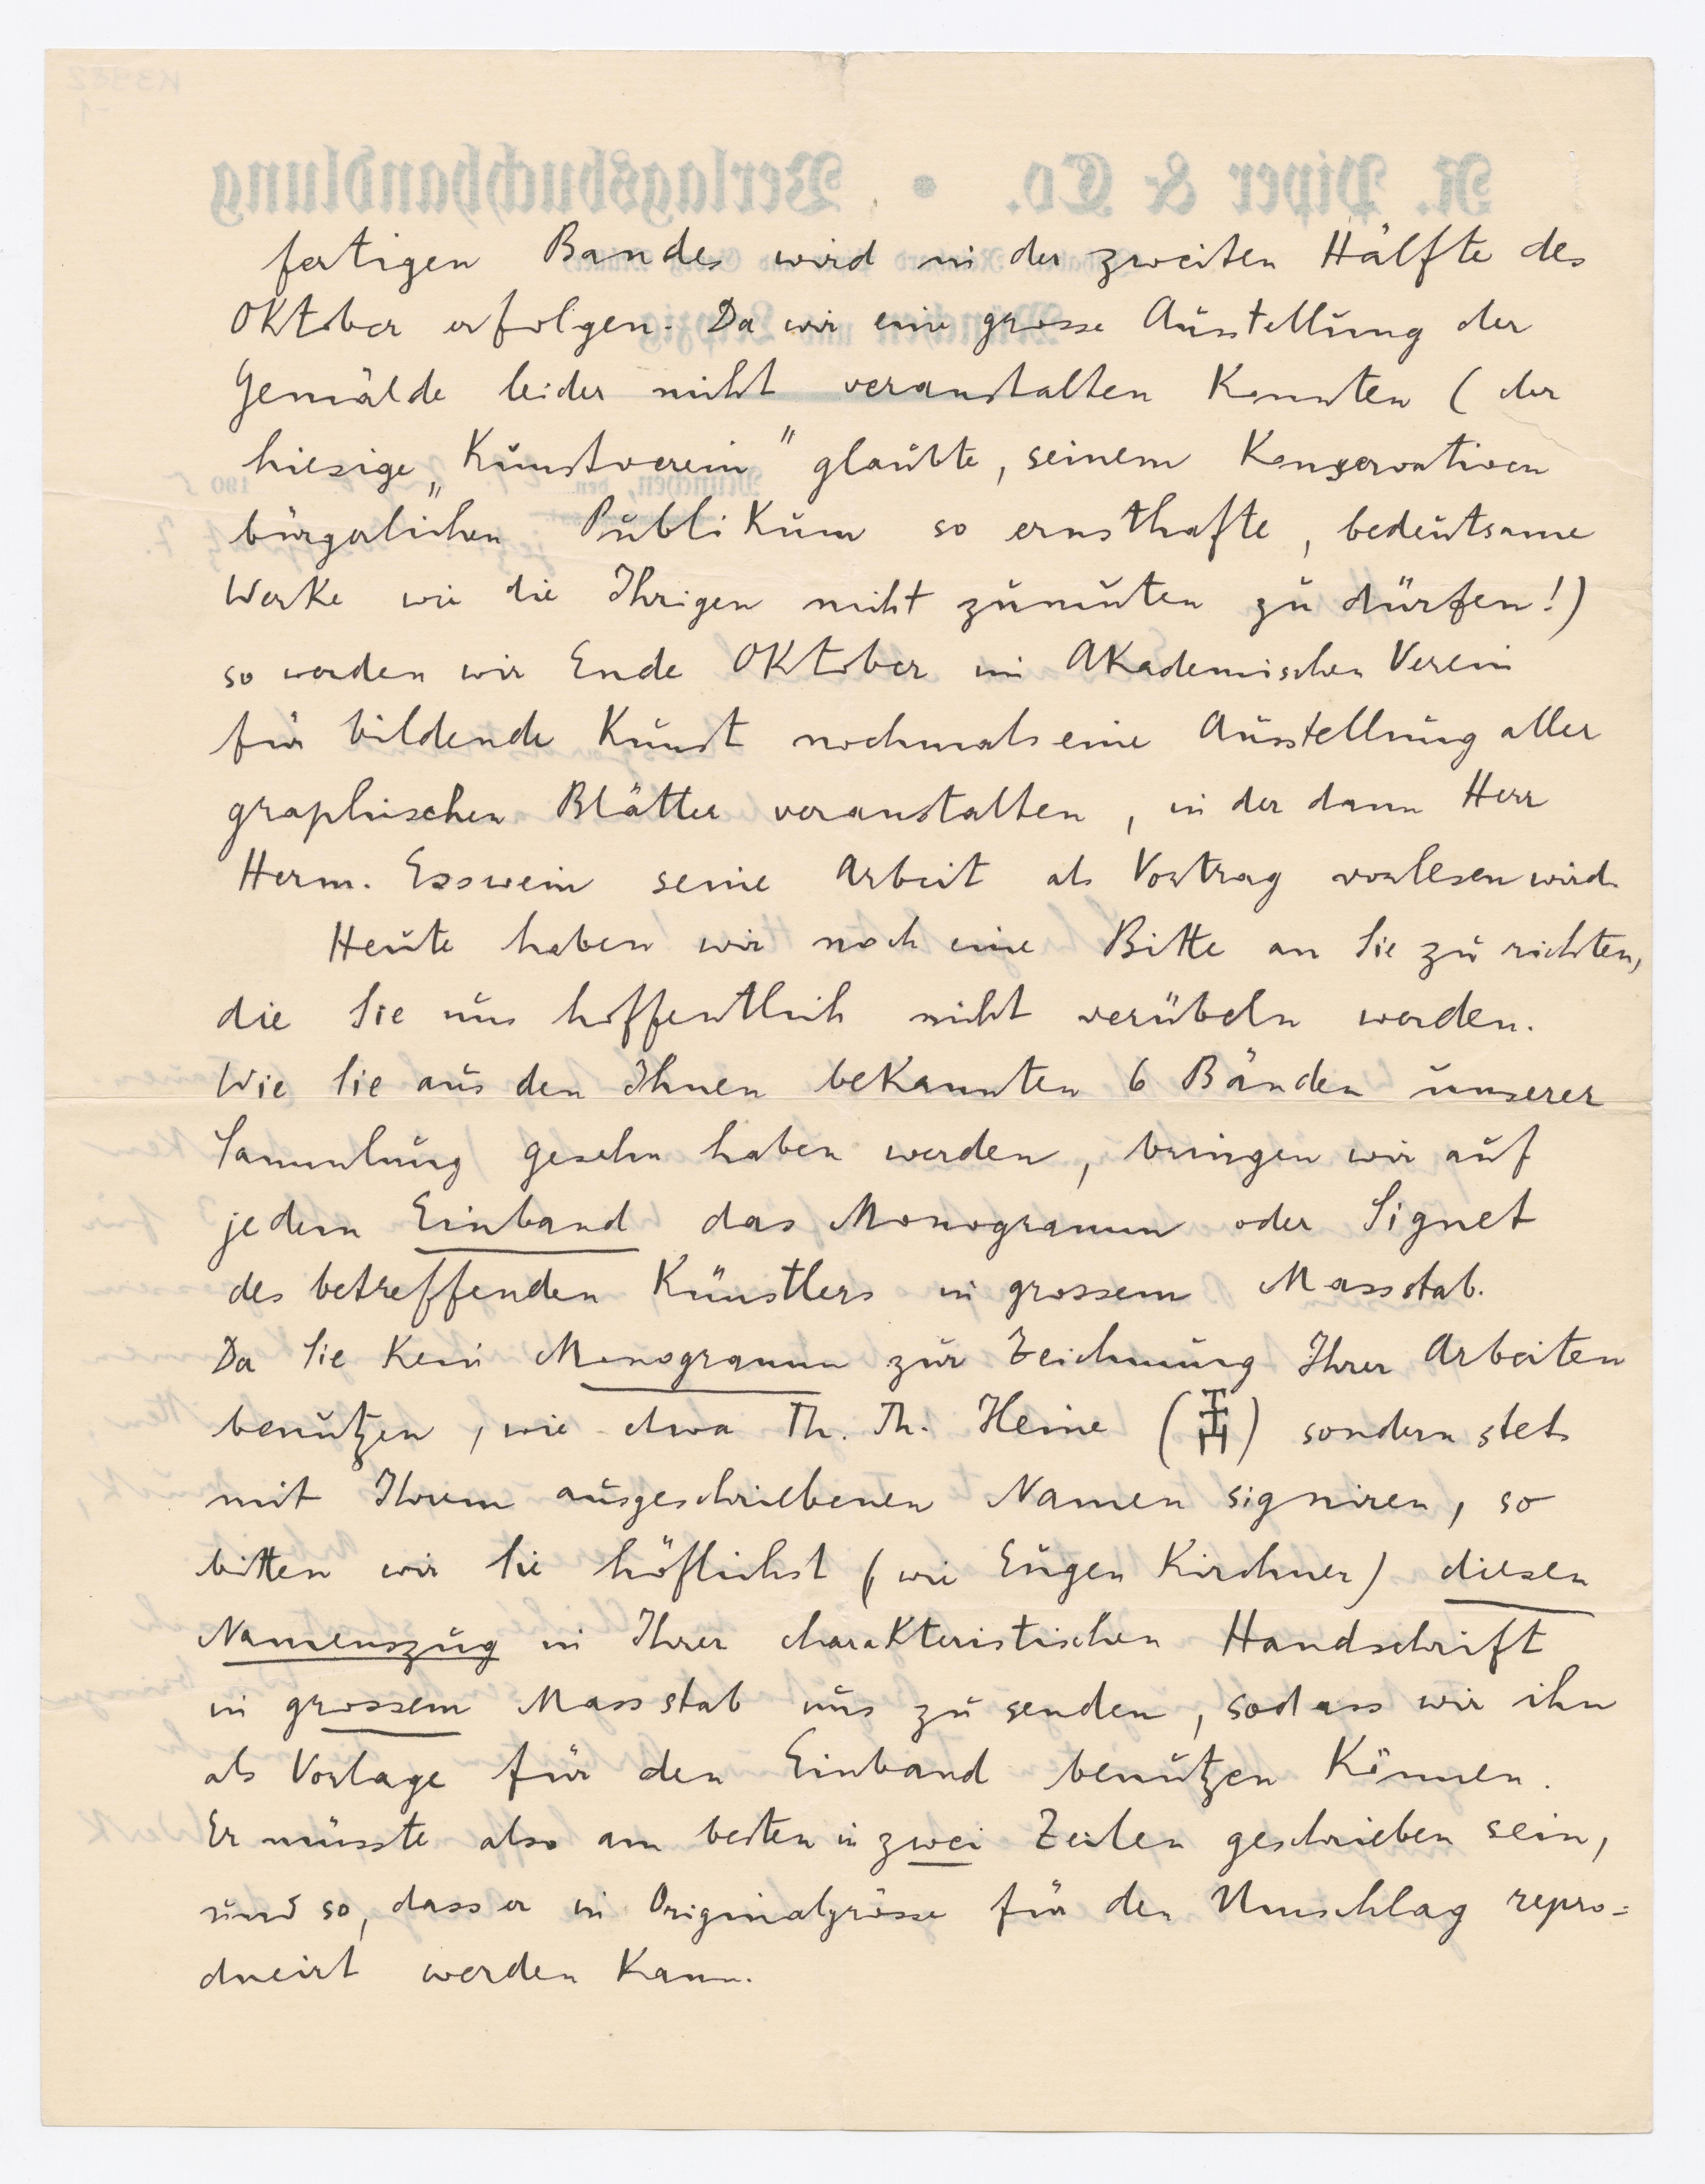 fertigen Bandes wird in der zweiten Hälfte des
Oktober erfolgen. Da wir eine grosse Ausstellung der
Gemälde leider nicht veranstalten konnten (der
hiesige „Kunstverein" glaubte, seinem konservativen
bürgerlichen Publikum so ernsthafte, bedeutsame
Werke wie die Ihrigen nicht zumuten zu dürfen!)
so werden wir Ende Oktober im Akademischen Verein
für bildende Kunst nochmals eine Ausstellung aller
graphischen Blätter veranstalten, in der dann Herr
Herm. Esswein seine Arbeit als Vortrag vorlesen wird.
Heute haben wir noch eine Bitte an Sie zu richten,
die Sie uns hoffentlich nicht verübeln werden.
Wie Sie aus den Ihnen bekannten 6 Bänden unserer
Sammlung gesehn haben werden, bringen wir auf
jedem Einband das Monogramm oder Signet
des betreffenden Künstlers in grossem Massstab.
Da Sie kein Monogramm zur Zeichnung Ihrer Arbeiten
benutzen, wie etwa Th. Th. Heine ( ) sondern stets
mit Ihrem ausgeschriebenen Namen signiren, so
bitten wir Sie höflichst (wie Eugen Kirchner) diesen
Namenszug in Ihrer charakteristischen Handschrift
in grossem Massstab uns zu senden, sodass wir ihn
als Vorlage für den Einband benutzen können.
Er müsste also am besten in zwei Zeilen geschrieben sein,
und so, dass er in Originalgrösse für den Umschlag repro=
ducirt werden kann.